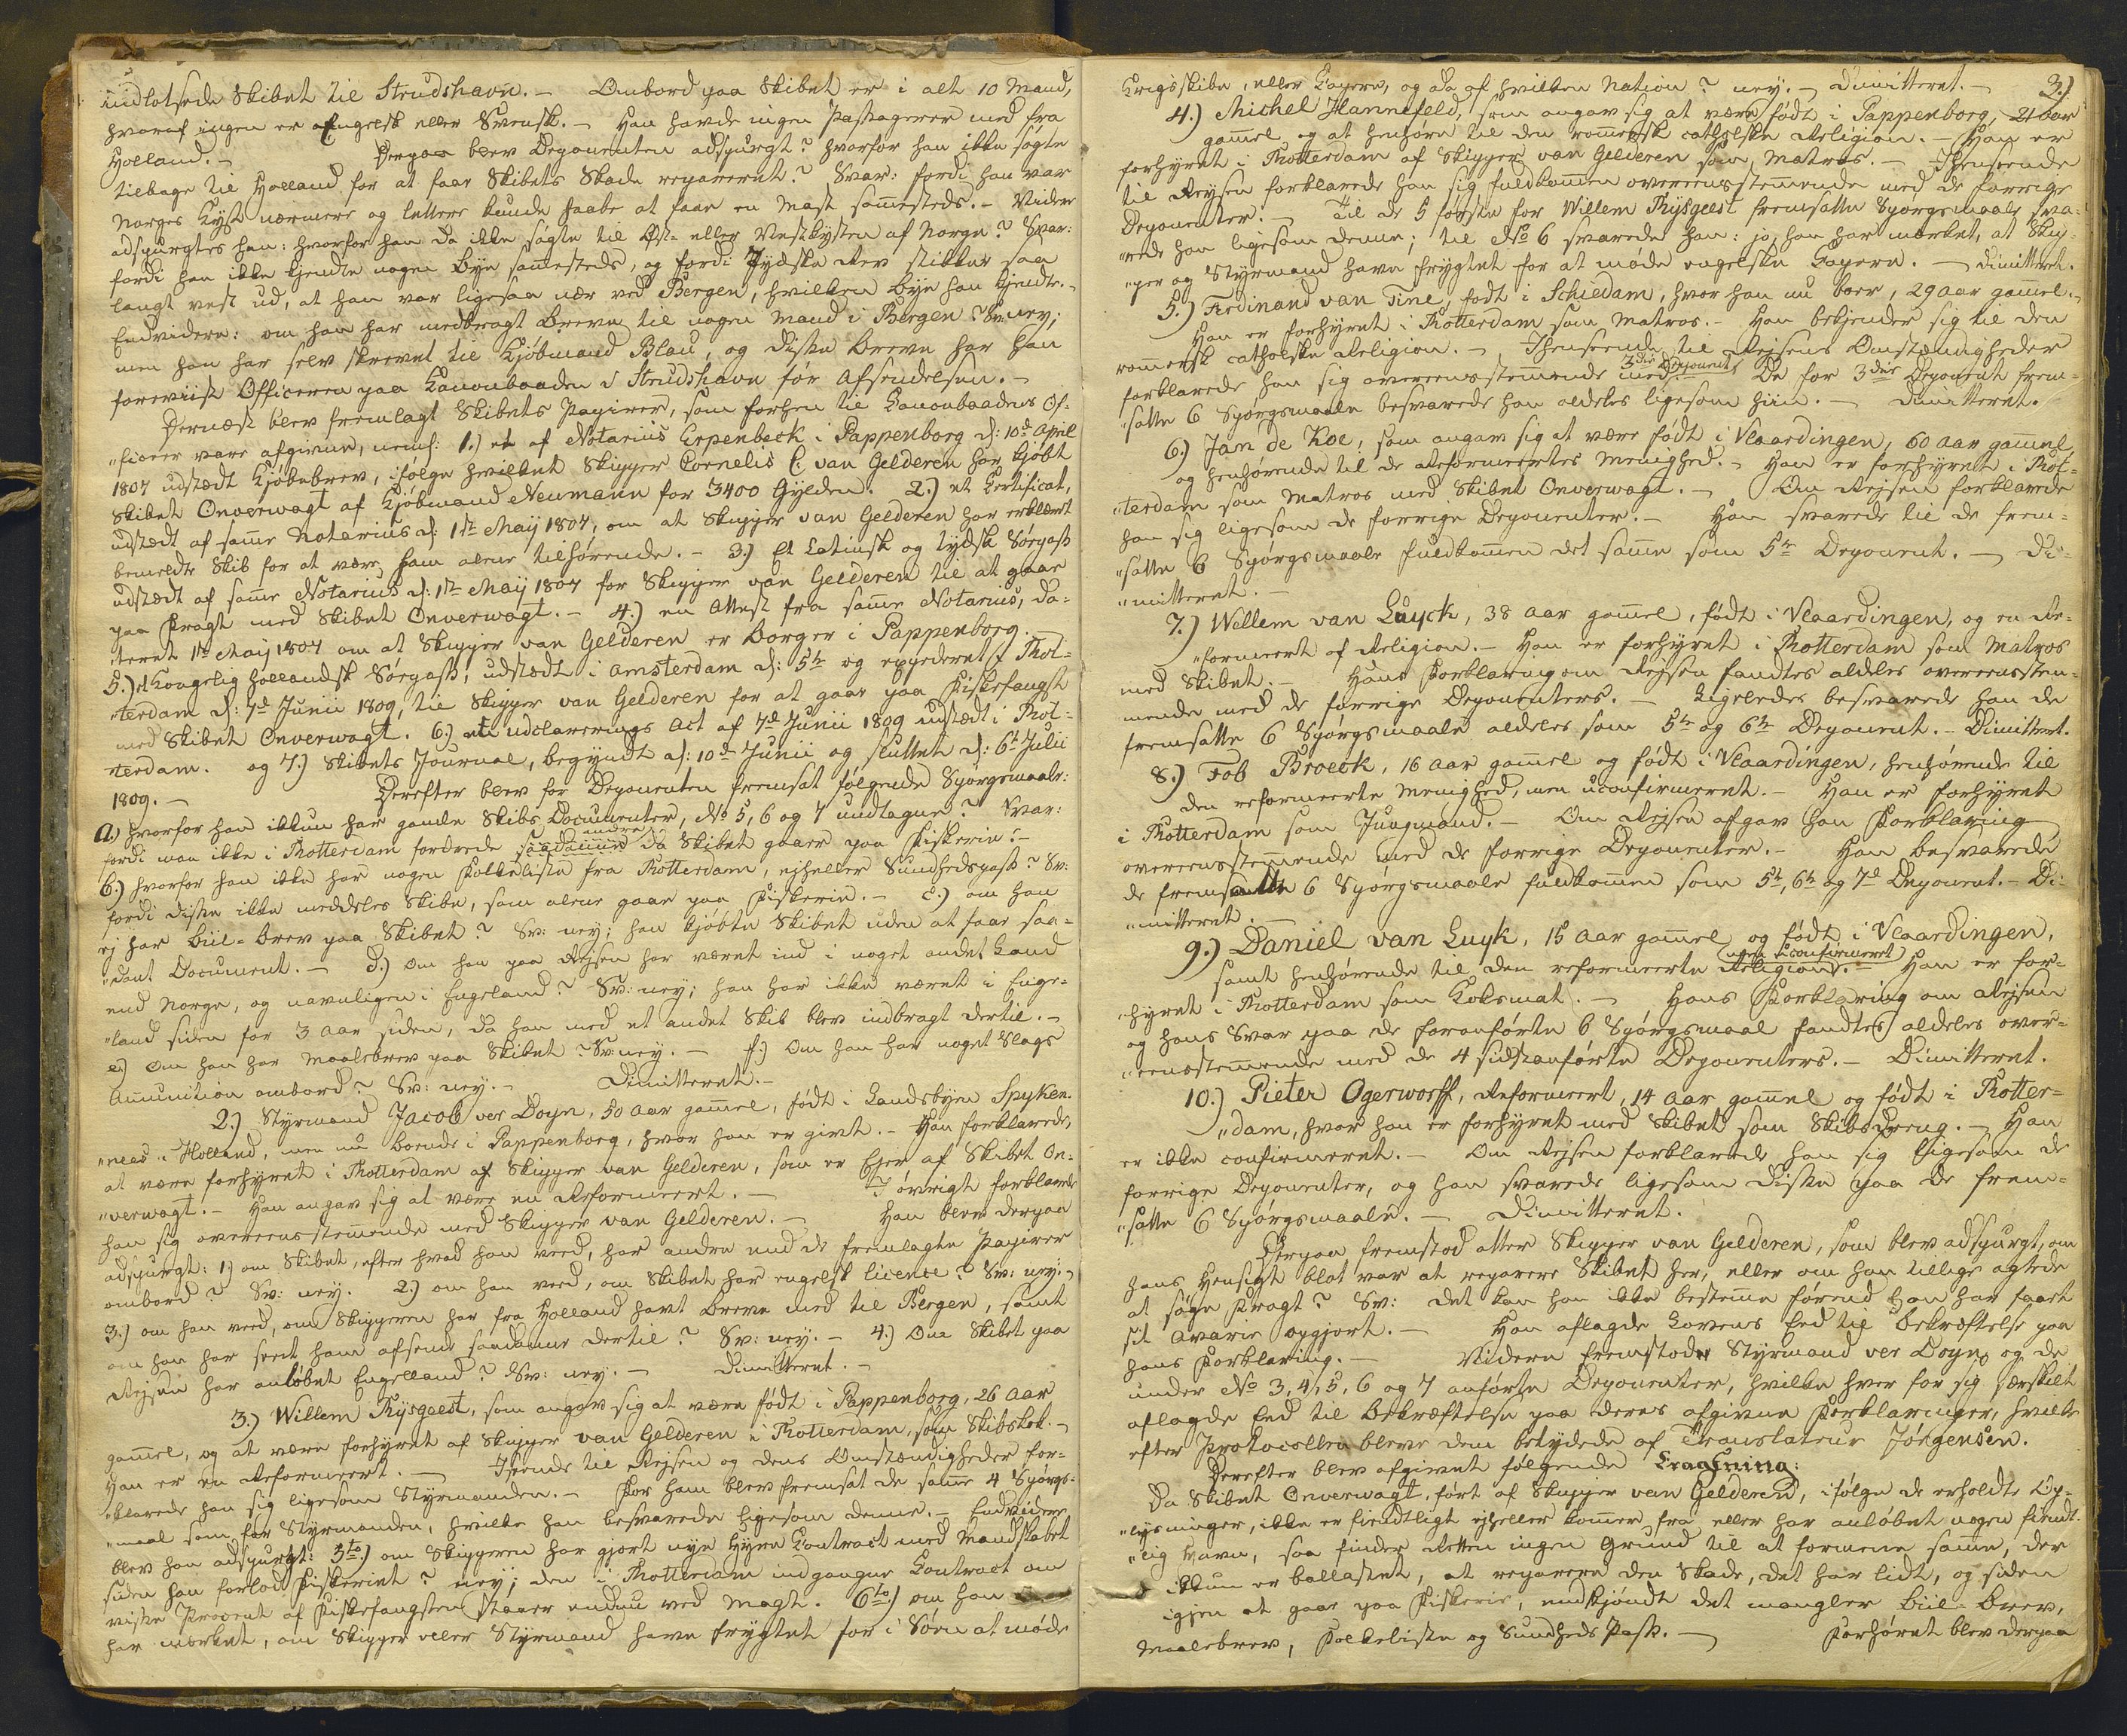 indlotsede Skibet til Strudshavn. – Ombord paa Skibet er i alt 10 Mand,
hvoraf ingen er Engelsk eller Svensk. – Han havde ingen Passagerer med fra
Holland. – Derpaa blev Deponenten adspurgt? hvorfor han ikke søgte
tilbage til Holland for at faae Skibets Skade repareret? Svar: fordi han var
Norges Kyst nærmere og lettere kunde haabe at faae en Mast samesteds. – Videre
adspurgtes han: hvorfor han da ikke søgte til Øst- eller Vestkysten af Norge? Svar:
fordi han ikke kjendte nogen Bye samesteds, og fordi Jydske Rev stikker saa
langt vest ud, at han var ligesaa nær ved Bergen, hvilken Bye han kjendte. –
Endvidere: om han har medbragt Breve til nogen Mand i Bergen? Sv: ney;
men han har selv skrevet til Kjøbmand Blau, og disse Breve har han
foreviist Officeren paa Kanonbaaden i Strudshavn før Afsendelsen. –
Dernæst blev fremlagt Skibets Papirer, som forhen til Kanonbaadens Of-
"ficeer vare afgivne, neml: 1.) et af Notarius Erpenbeck i Pappenborg d: 10d April
1807 udstædt Kjøbebrev, ifølge hvilket Skipper Cornelis C: van Gelderen har kjøbt
Skibet Onverwagt af Kjøbmand Neumann for 3400 Gylden. 2.) et Certificat,
udstædt af same Notarius d: 1te Maij 1807, om at Skipper van Gelderen har erklært
bemeldte Skib for at være ham alene tilhørende. – 3.) Et Latinsk og tydsk Søepass
udstædt af same Notarius d: 1te Maij 1807 for Skipper van Gelderen til at gaae
paa Fragt med Skibet Onverwagt. – 4.) en Attest fra same Notarius, da-
"teret 1te Maij 1807 om at Skipper van Gelderen er Borger i Pappenborg.
5.) et Kongelig hollandsk Søepass, udstædt i Amsterdam d: 5te og expederet i Rot-
"terdam d: 7d Junii 1809, til Skipper van Gelderen for at gaae paa Fiskefangst
med Skibet Onverwagt. 6.) et udclarerings Act af 7d Junii 1809 udstædt i Rot-
"terdam. og 7.) Skibets Journal, begyndt d: 10d Junii og sluttet d: 6t Julii
1809. – Derefter blev for Deponenten fremsat følgende Spørgsmaale:
a.) hvorfor han ikkun har gamle Skibs Documenter, No 5, 6 og 7 undtagne? Svar:
fordi man ikke i Rotterdam fordrede saadanne andre da Skibet gaaer paa Fiskerie. –
b.) hvorfor han ikke har nogen Folkeliste fra Rotterdam, ejheller Sundhedspass? Sv:
fordi disse ikke meddeles Skibe, som alene gaae paa Fiskerie. – c.) om han
ej har Biil-Brev paa Skibet? Sv: ney; han kjøbte Skibet uden at faae saa-
"dant Document. – d.) om han paa Rejsen har været ind i noget andet Land
end Norge, og navnligen i Engeland? Sv: ney; han har ikke været i Enge-
"land siden for 3 Aar siden, da han med et andet Skib blev indbragt dertil. –
e.) Om han har Maalebrev paa Skibet? Sv: ney. – f.) Om han har noget Slags
Amunition ombord? Sv: ney. – Dimitteret. –
2.) Styrmand Jacob ver Doyn, 50 Aar gamel, født i Landsbyen Spyken-
"nees i Holland, men nu boende i Pappenborg, hvor han er givt. – Han forklarede,
at være forhyret i Rotterdam af Skipper van Gelderen, som er Ejer af Skibet On-
"verwagt. – Han angav sig at være en Reformeert. – I øvrigt forklarede
han sig overeensstemende med Skipper van Gelderen. – Han blev derpaa
adspurgt: 1) om Skibet, efter hvad han veed, har andre end de fremlagte Papirer
ombord? Sv: ney. 2.) om han veed, om Skibet har engelsk licence? Sv: ney. –
3.) om han veed, om Skipperen har fra Holland havt Breve med til Bergen, samt
om han har seet ham afsende saadanne dertil? Sv: ney. – 4.) Om Skibet paa
Rejsen har anløbet Engelland? Sv: ney. – Dimitteret. –
3.) Willem Rijsgeest, som angav sig at være født i Pappenborg, 26 Aar
gamel, og at være forhyret af Skipper van Gelderen i Rotterdam, som Skibskok. –
Han er en Reformeert. – Henseende til Rejsen og dens Omstændigheder for-
"klarede han sig ligesom Styrmanden. – For ham blev fremsat de same 4 Spørgs-
"maal som for Styrmanden, hvilke han besvarede ligesom denne. – Endvidere
blev han adspurgt: 5to.) om Skipperen har gjort nye Hyre Contract med Mandskabet
siden han forlod Fiskeriet? ney; den i Rotterdam indgangne Contract om
visse Procent af Fiskefangsten staaer endnu ved Magt. 6to.) om han
har mærket, om Skipper eller Styrmand have frygtet for i Søen at møde
Krigsskibe, eller Capere, og da af hvilken Nation? ney. – Dimitteret. –
3.)
4.) Michel Hannefeld, som angav sig at være født i Pappenborg, 21 Aar
gamel, og at henhøre til den romersk catholske Religion. – Han er
forhyret i Rotterdam af Skipper van Gelderen som Matros. – Henseende
til Reysen forklarede han sig fuldkomen overeensstemende med de forrige
Deponenter. – Til de 5 første for Willem Rijsgeest fremsatte Spørgsmaale sva-
"rede han ligesom denne; til No 6 svarede han: jo, han har mærket, at Skip-
"per og Styrmand have frygtet for at møde engelske Capere. – Dimitteret.
5.) Ferdinand van Tine, født i Schiedam, hvor han nu boer, 29 Aar gamel. –
Han er forhyret i Rotterdam som Matros. – Han bekjender sig til den
romersk catholske Religion. – Henseende til Rejsens Omstændigheder
forklarede han sig overeensstemende med 3die Deponent. De for 3die Deponent frem-
"satte 6 Spørgsmaale besvarede han aldeles ligesom hiin. – Dimitteret.
6.) Jan de Koe, som angav sig at være født i Vlaardingen, 60 Aar gamel,
og henhørende til de Reformeertes Menighed. – Han er forhyret i Rot-
"terdam som Matros med Skibet Onverwagt. – Om Rejsen forklarede
han sig ligesom de forrige Deponenter. – Han svarede til de frem-
"satte 6 Spørgsmaale fuldkomen det same som 5te Deponent. – Di-
"mitteret. –
7.) Willem van Luyck, 38 Aar gamel, født i Vlaardingen, og en Re-
"formeert af Religion. – Han er forhyret i Rotterdam som Matros
med Skibet. – Hans Forklaring om Rejsen fandtes aldeles overeensstem-
mende med de forrige Deponenters. – Ligeledes besvarede han de
fremsatte 6 Spørgsmaale aldeles som 5te og 6te Deponent. – Dimitteret.
8.) Fob Broeck, 16 Aar gamel og født i Vlaardingen, henhørende til
den reformeerte Menighed, men uconfirmeret. – Han er forhyret
i Rotterdam som Jungmand. – Om Rejsen afgav han Forklaring
overeensstemende med de forrige Deponenter. – Han besvarede
de fremsatte 6 Spørgsmaale fuldkomen som 5te, 6te og 7d Deponent. – Di-
"mitteret. –
9.) Daniel van Luyk, 15 Aar gamel og født i Vlaardingen,
samt henhørende til den reformeerte Religion, men uconfirmeret. – Han er for-
"hyret i Rotterdam som Koksmat. – Hans Forklaring om Rejsen
og hans Svar paa de foranførte 6 Spørgsmaal fandtes aldeles over-
"eensstemende med de 4 sidstanførte Deponenters. – Dimitteret.
10.) Pieter Ogerworff, Reformeert, 14 Aar gamel og født i Rotter-
"dam, hvor han er forhyret med Skibet som Skibsdreng. – Han
er ikke confirmeret. – Om Rejsen forklarede han sig ligesom de
forrige Deponenter, og han svarede ligesom disse paa de frem-
"satte 6 Spørgsmaale. – Dimitteret.
Derpaa fremstod atter Skipper van Gelderen, som blev adspurgt, om
hans Hensigt blot var at reparere Skibet her, eller om han tillige agtede
at søge Fragt? Sv: det kan han ikke bestemme førend han har faaet
sit Avarie opgjort. – Han aflagde Lovens Eed til Bekræftelse paa
hans Forklaring. – Videre fremstode Styrmand ver Doyn og de
under No 3, 4, 5, 6 og 7 anførte Deponenter, hvilke hver for sig særskilt
aflagde Eed til Bekræftelse paa deres afgivne Forklaringer, hvilke
efter Protocollen bleve dem betydede af Translateur Jørgensen.
Derefter blev afgivet følgende Eragtning:
Da Skibet Onverwagt, ført af Skipper van Gelderen, ifølge de erholdte Op-
"lysninger, ikke er fiendtligt ejheller komer fra eller har anløbet nogen fiendt-
"lig Havn, saa finder Retten ingen Grund til at formene same, der
ikkun er ballastet, at reparere den Skade, det har lidt, og siden
igjen at gaae paa Fiskerie, endskjøndt det mangler Biil-Brev,
Maalebrev, Folkeliste og Sundheds Pass. – Forhøret blev derpaa